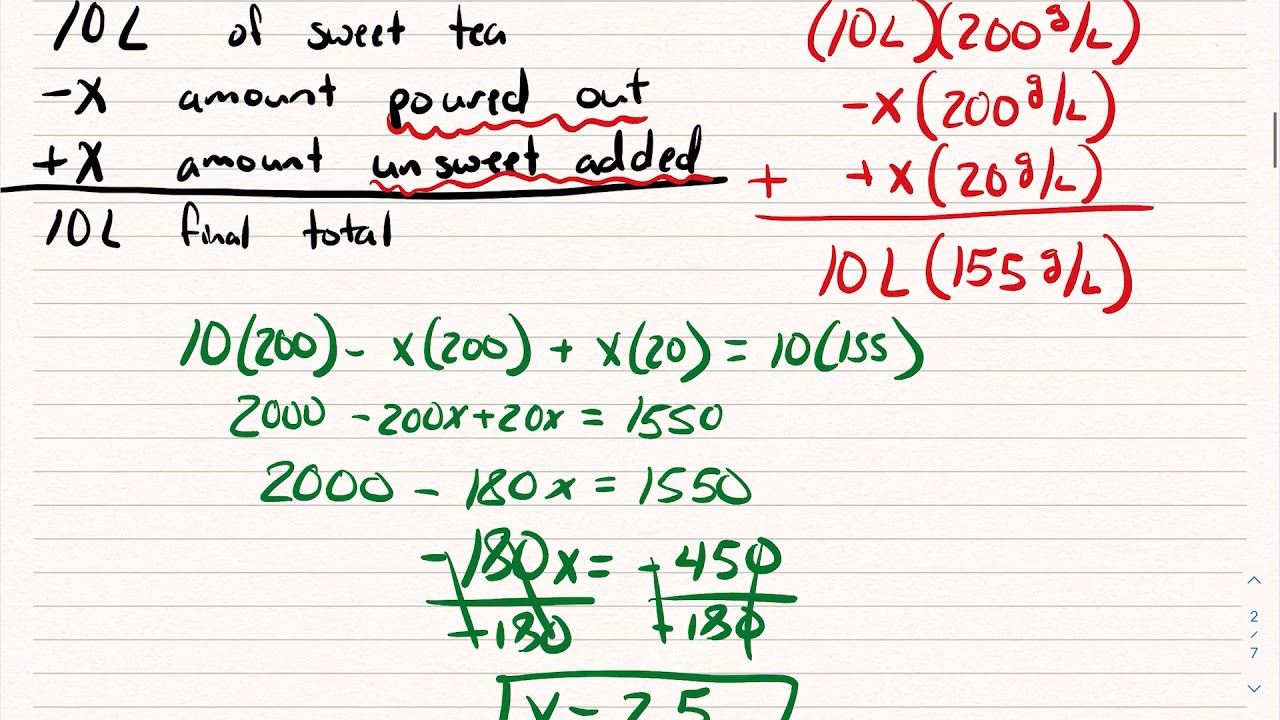 10L of sweet tea
-X amount poured out
+X amount unsweet added
10L final total
(10L)(200 g/L)
-X(200 g/L)
+ +X(20 g/L)
10L(155 g/L)
10(200) - x(200) + x(20) = 10(155)
2000 - 200x + 20x = 1550
2000 - 180x = 1550
-180x = -450
-180 -180
x = 2.5
2
/
7